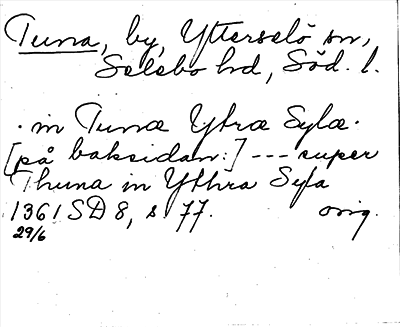 Tuna, by, Ytterselö sn,
Selebo hd, Söd. l.
· in Tunæ Ytræ Sylæ ·
[på baksidan:] --- super
Thuna in Ythra Syla
1361 SD 8, s 77. orig.
29/6